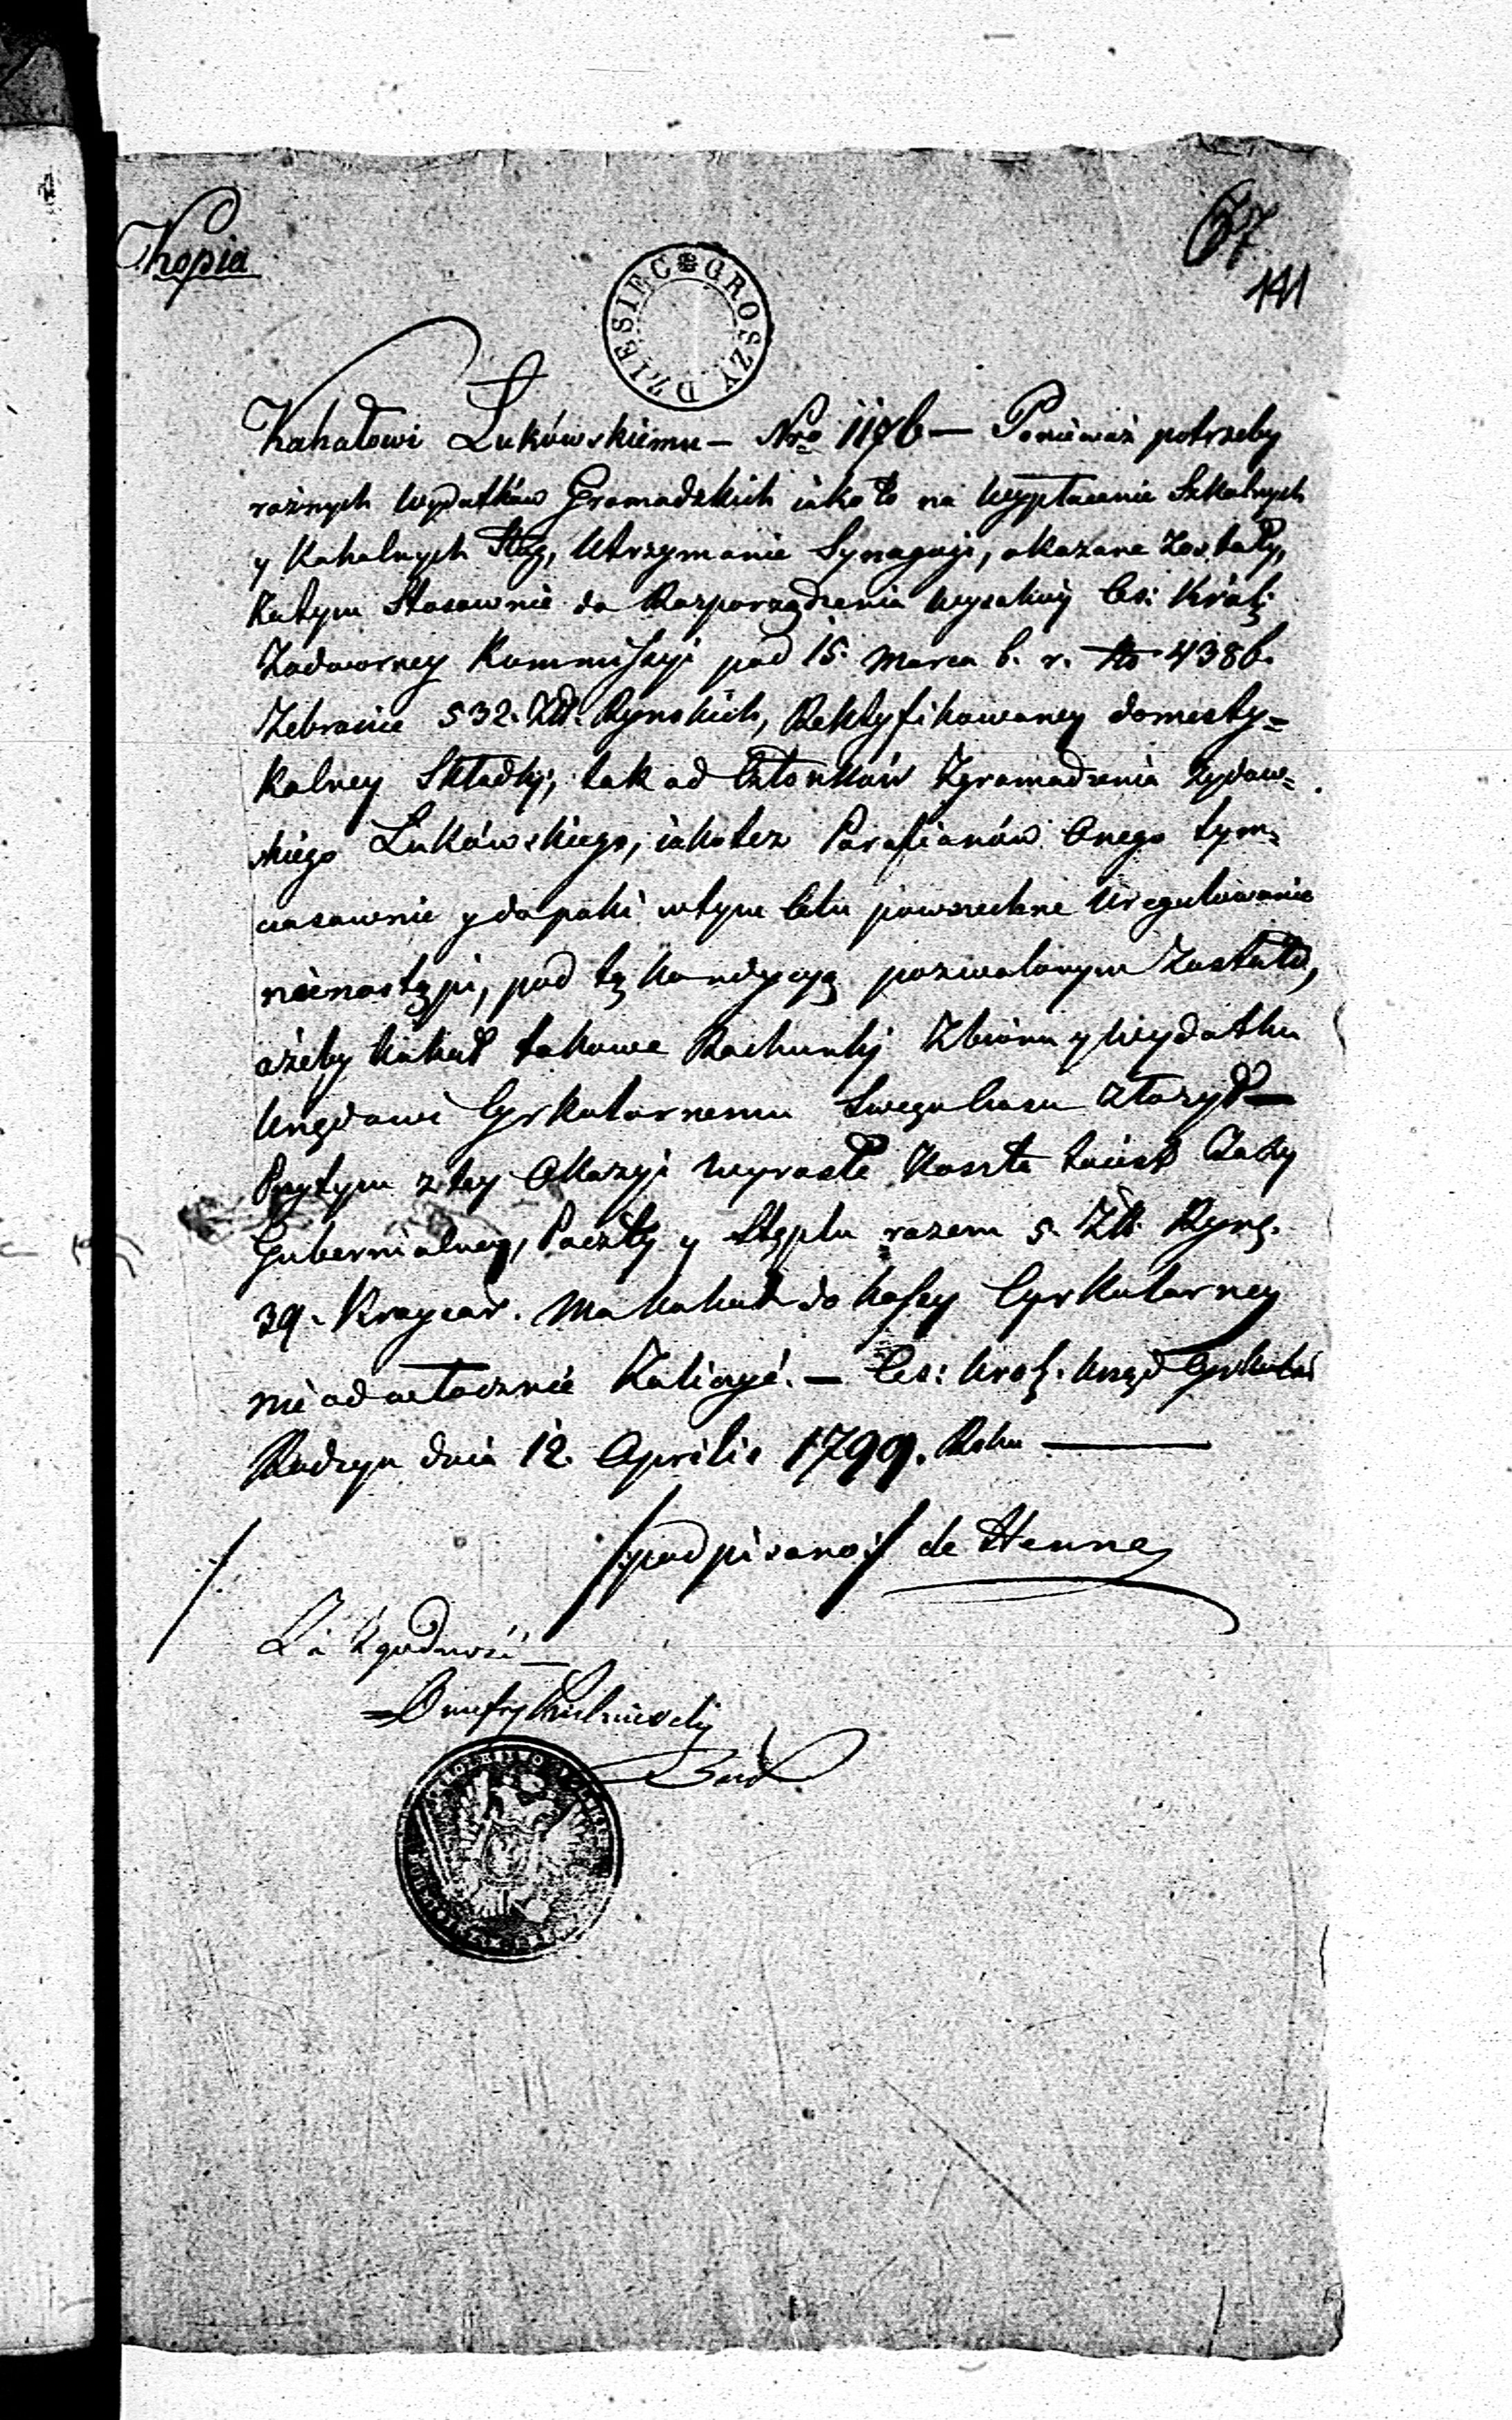 Kopia
67
141
DZIESIEC GROSZY
Kahałowi Łukówskiemu — Nro 1176 — Ponieważ potrzeby
rożnych wydatków Gromadzkich iako to na wypłacenie Szkolnych
y Kahalnych Sług, Utrzymanie Synagogi, okazane zostały,
Zatym Stosownie do Rozporządzenia wysokiey Ces: Król:
Nadworney Kommissyi pod 15. Marca b. r. No 4386.
Zebranie 532. Złł. Rynskich, Rektyfikowaney domesty=
kalney Składki, tak od Członków Zgromadzenia Żydow=
skiego Łukówskiego, iakotez Parafianów Onego tym=
czasownie y dopoki wtym Celu powszechne Uregulowanie
nienastąpi, pod tą kondycyą pozwolonym Zostało,
ażeby Kahał takowe Rachunki Zbioru y Wydatku
Urzędowi Cyrkularnemu Swego Czasu złożył —
Przytym z tey Okazyi wyrosłe Koszta toiest Taxy
Gubernialney, Poczty y Stęplu razem 5. Złł. Ryns.
39. Kraycar. ma Kahał do Kassy Cyrkularney
nieodwłocznie Zaliczyć. — Ces: Krol: Urząd Cyrkular
Radzyn dnia 12. Aprilis 1799. Roku —
/:podpisano:/ de Henne
Za Zgodność —